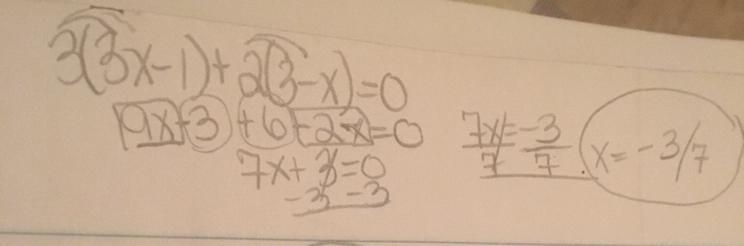 3(3x-1)+2(3-x)=0
9x-3+6-2x=0
7x+3=0
-3 -3
7x=-3
7 7
x=-3/7